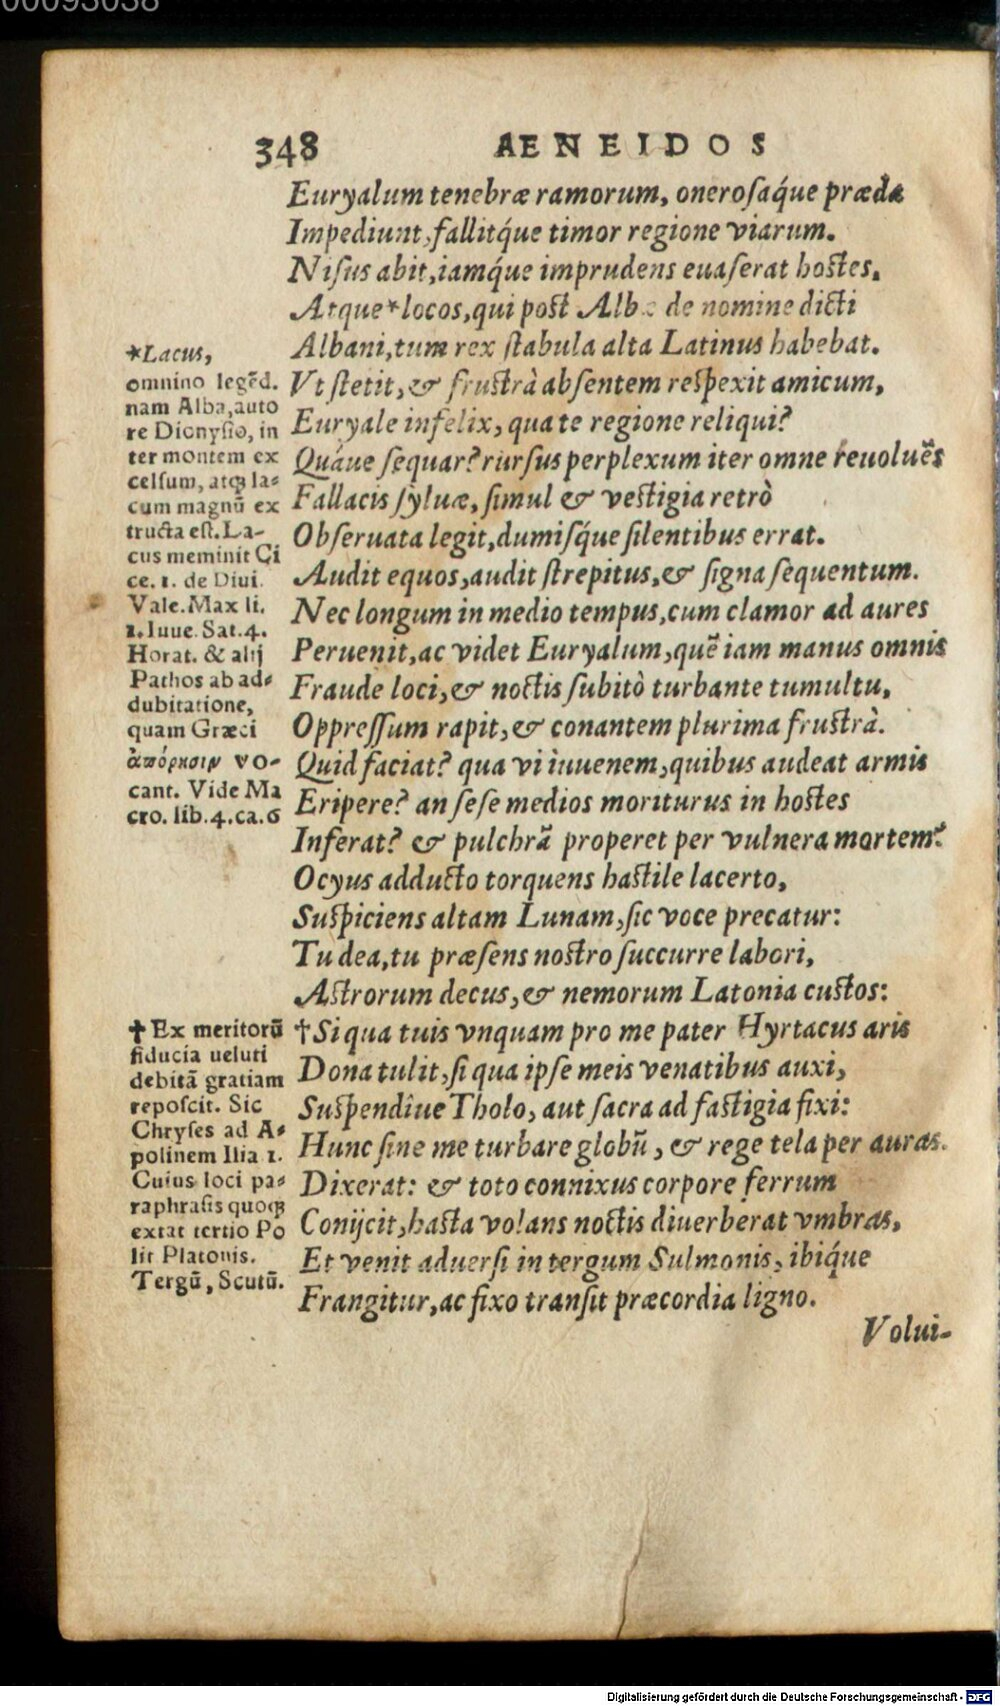 00093038
348 AENEIDOS
Euryalum tenebræ ramorum, oneroſaq́ue præda
Impediunt, fallitq́ue timor regione viarum.
Niſus abit, iamq́ue imprudens euaſerat hostes,
Atque*locos, qui post Albæ de nomine dicti
Albani, tum rex ſtabula alta Latinus habebat.
Vt ſtetit, & frustrà abſentem reſpexit amicum,
Euryale infelix, qua te regione reliqui?
Quáue ſequar? rurſus perplexum iter omne reuoluẽs
Fallacis ſyluæ, ſimul & vestigia retrò
Obſeruata legit, dumiſq́ue ſilentibus errat.
Audit equos, audit ſtrepitus, & ſigna ſequentum.
Nec longum in medio tempus, cum clamor ad aures
Peruenit, ac videt Euryalum, quẽ iam manus omnis
Fraude loci, & noctis ſubitò turbante tumultu,
Oppreſſum rapit, & conantem plurima frustrà.
Quid faciat? qua vi iuuenem, quibus audeat armis
Eripere? an ſeſe medios moriturus in hostes
Inferat? & pulchrã properet per vulnera mortem?
Ocyus adducto torquens hastile lacerto,
Suſpiciens altam Lunam, ſic voce precatur:
Tu dea, tu præſens nostro ſuccurre labori,
Astrorum decus, & nemorum Latonia custos:
†Si qua tuis vnquam pro me pater Hyrtacus aris
Dona tulit, ſi qua ipſe meis venatibus auxi,
Suſpendîue Tholo, aut ſacra ad fastigia fixi:
Hunc ſine me turbare globũ, & rege tela per auras.
Dixerat: & toto connixus corpore ferrum
Conijcit, hasta volans noctis diuerberat vmbras,
Et venit aduerſi in tergum Sulmonis, ibiq́ue
Frangitur, ac fixo tranſit præcordia ligno.
Volui-
*Lacus,
omnino legẽd.
nam Alba, auto
re Dionyſio, in
ter montem ex
celſum, atqꝫ la-
cum magnũ ex
tructa eſt. La-
cus meminit Ci
ce. 1. de Diui.
Vale. Max li.
1. Iuue. Sat. 4.
Horat. & alij
Pathos ab ad-
dubitatione,
quam Græci
ἀπόρησιν vo-
cant. Vide Ma
cro. lib. 4. ca. 6
†Ex meritorũ
fiducia ueluti
debitã gratiam
repoſcit. Sic
Chryſes ad A-
polinem Ilia 1.
Cuius loci pa-
raphraſis quoqꝫ
extat tertio Po
lit Platonis.
Tergũ, Scutũ.
Digitalisierung gefördert durch die Deutsche Forschungsgemeinschaft - DFG